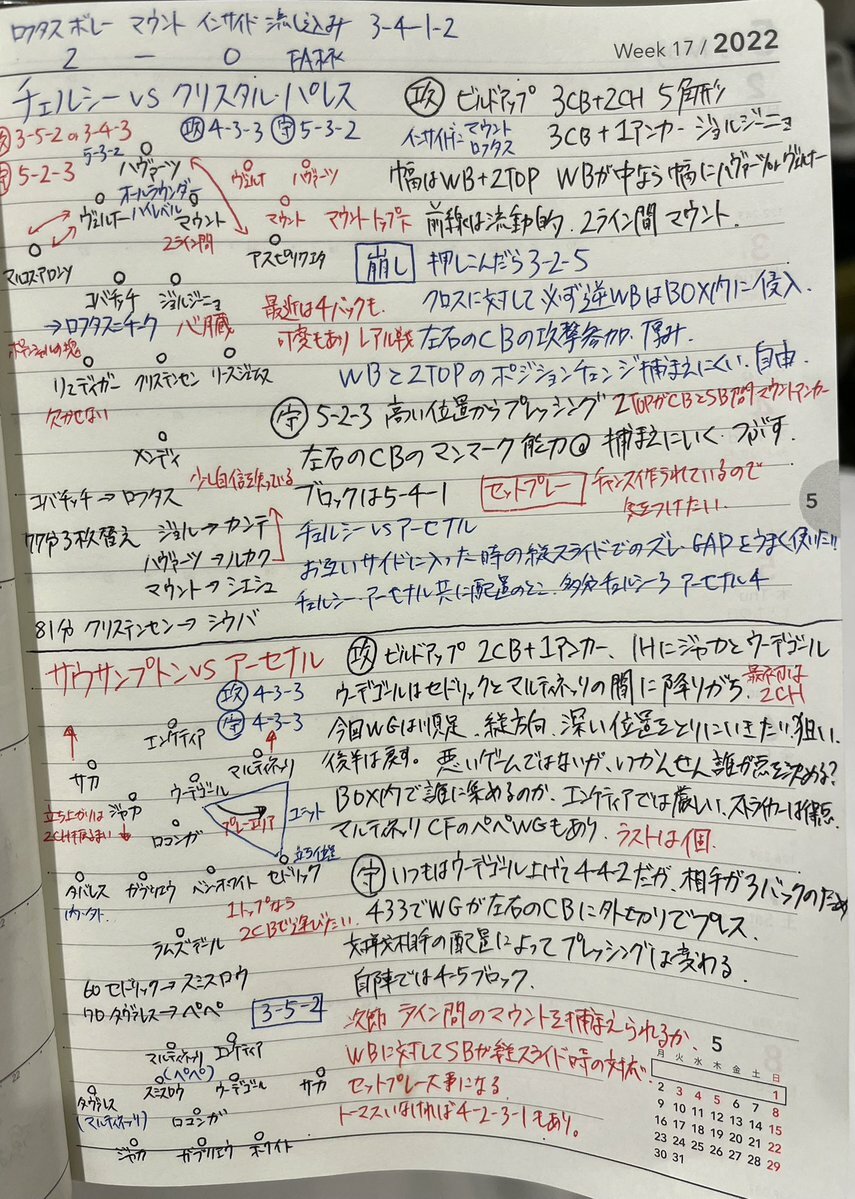 ロフタス ボレー マウント インサイド 流し込み 3-4-1-2
2 - 0 FA杯
Week 17 / 2022
チェルシー vs クリスタル・パレス
攻 3-5-2 の 3-4-3
攻 4-3-3 守 5-3-2
守 5-2-3
5-3-2
ハヴァーツ
オールラウンダー
ハイレベル
ヴェルナー
マウント
2ライン間
マルコス・アロンソ
アスピリクエタ
ヴェルナ ハヴァーツ
マウント マウントトップ下
コバチッチ ジョルジーニョ
→ロフタス=チーク 心臓
最近は4バックも.
可変もあり レアル戦
リュディガー クリステンセン リースジェームズ
欠かせない
メンディ
少し自信を失っている
コバチッチ→ロフタス
77分3枚替え ジョル→カンテ
ハヴァーツ→ルカク
マウント→シエシュ
81分 クリステンセン→シウバ
攻 ビルドアップ 3CB+2CH 5角形
インサイドに マウント ロフタス
3CB+1アンカー ジョルジーニョ
幅はWB+2TOP WBが中なら幅にハヴァーツorヴェルナー
前線は流動的. 2ライン間 マウント.
崩し 押しこんだら3-2-5
クロスに対して必ず逆WBはBOX内に侵入.
左右のCBの攻撃参加. 厚み.
WBと2TOPのポジションチェンジ捕まえにくい. 自由
守 5-2-3 高い位置からプレッシング
2TOPがCBとSB マウントアンカー
左右のCBのマンマーク能力◎ 捕まえにいく つぶす.
ブロックは5-4-1
セットプレー チャンス作られているので
気をつけたい.
チェルシー vs アーセナル
お互いサイドに入った時の縦スライドでのズレ・GAPをうまく使いたい!!
チェルシー・アーセナル共に配置のとこ. 多分チェルシー3 アーセナル4
5
サウサンプトン vs アーセナル
攻 4-3-3
守 4-3-3
エンケティア
サカ
マルティネッリ
ウーデゴール
立ち上がりは
2CH
ジャカ
ロコンガ
プレーエリア
ユニット
立ち位置
タバレス ガブリエウ ベン・ホワイト セドリック
内・外.
1トップなら
2CBで運びたい.
ラムズデール
60 セドリック→スミスロウ
70 タヴァレス→ペペ
3-5-2
マルティネッリ
(ペペ)
エンケティア
タヴァレス
(マルティネッリ)
スミスロウ ウーデゴール サカ
ロコンガ
ジャカ ガブリエウ ホワイト
攻 ビルドアップ 2CB+1アンカー、IHにジャカとウーデゴール
ウーデゴールはセドリックとマルティネッリの間に降りがち. 最初は2CH
今回WGは順足. 縦方向. 深い位置をとりにいきたい狙い.
後半は戻す。 悪いゲームではないが、いかんせん誰が点を決める?
BOX内で誰に集めるのか. エンケティアでは厳しい. ストライカーは
マルティネッリ CFのペペWGもあり. ラストは個.
守 いつもはウーデゴール上げて4-4-2だが. 相手が3バックのため
433でWGが左右のCBに外切りでプレス.
相手の配置によってプレッシングは変わる.
自陣では4-5ブロック.
次節 ライン間のマウントを捕まえられるか.
WBに対してSBが縦スライド時の対応.
セットプレー大事になる.
トーマスいなければ4-2-3-1もあり。
5
月 火 水 木 金 土 日
1
2 3 4 5 6 7 8
9 10 11 12 13 14 15
16 17 18 19 20 21 22
23 24 25 26 27 28 29
30 31